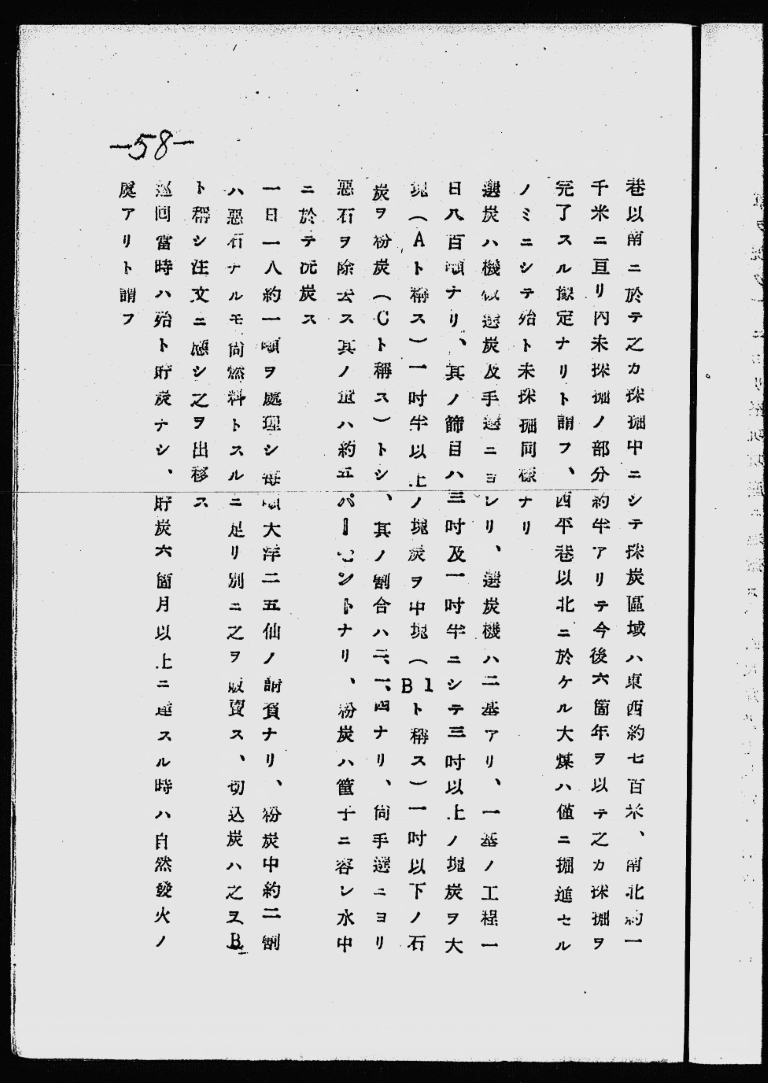 巷以南ニ於テ之カ採掘中ニシテ採炭區域ハ東西約七百米、南北約一
千米ニ亘リ內未採掘ノ部分約半アリテ今後六箇年ヲ以テ之カ採掘ヲ
完了スル假定ナリト謂フ、西平巷以北ニ於ケル大煤ハ僅ニ掘進セル
ノミニシテ殆ト未採掘同樣ナリ
選炭ハ機械選炭及手選ニヨレリ、選炭機ハ二基アリ、一基ノ工程一
日八百噸ナリ、其ノ篩目ハ三吋及一吋半ニシテ三吋以上ノ塊炭ヲ大
塊(Aト稱ス)一吋半以上ノ塊炭ヲ中塊(B1ト稱ス)一吋以下ノ石
炭ヲ粉炭(Cト稱ス)トシ、其ノ割合ハ二、一、四ナリ、尙手選ニヨリ
惡石ヲ除去ス其ノ量ハ約五パーセントナリ、粉炭ハ籠子ニ容レ水中
ニ於テ洗炭ス
一日一人約一噸ヲ處理シ每噸大洋二五仙ノ請負ナリ、粉炭中約二割
ハ惡石ナルモ尙燃料トスルニ足リ別ニ之ヲ販賣ス、切込炭ハ之ヲB
ト稱シ注文ニ應シ之ヲ出移ス
巡回當時ハ殆ト貯炭ナシ、貯炭六箇月以上ニ達スル時ハ自然發火ノ
虞アリト謂フ
—58—